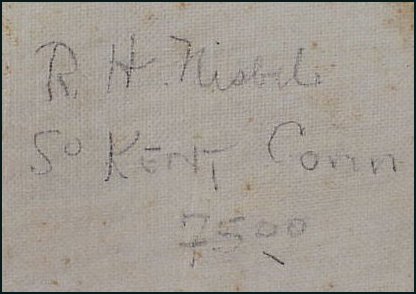 R. H. Nisbet
So KENT Conn
75oo